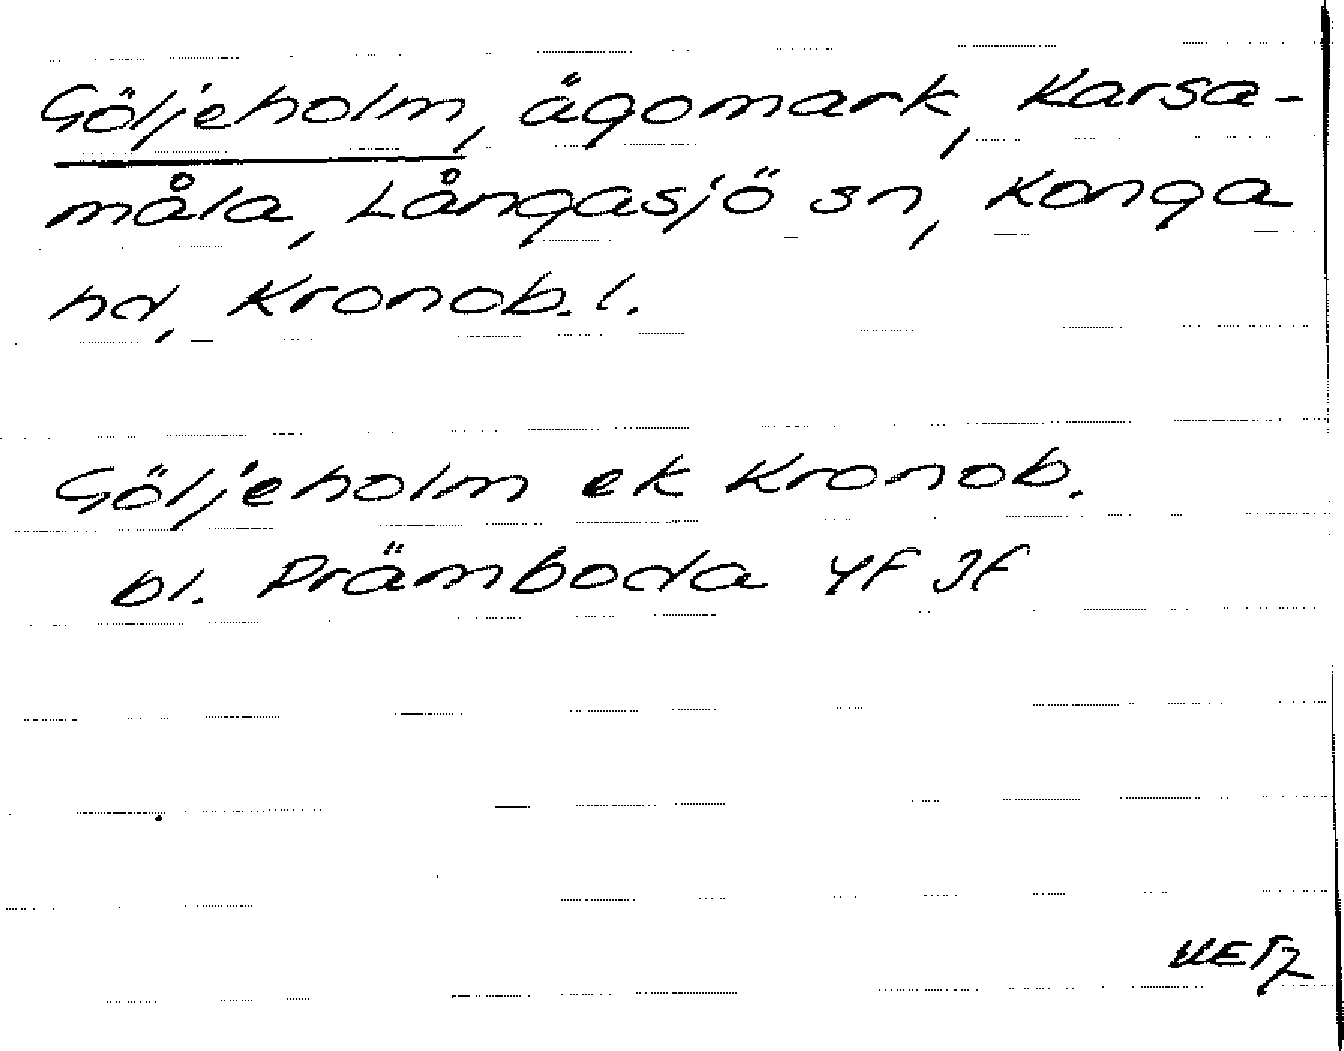 Göljeholm, ägomark, Karsa-
måla, Långasjö sn, Konga
hd, Kronob. l.
Göljeholm ek Kronob.
bl. Prämboda 4F JF